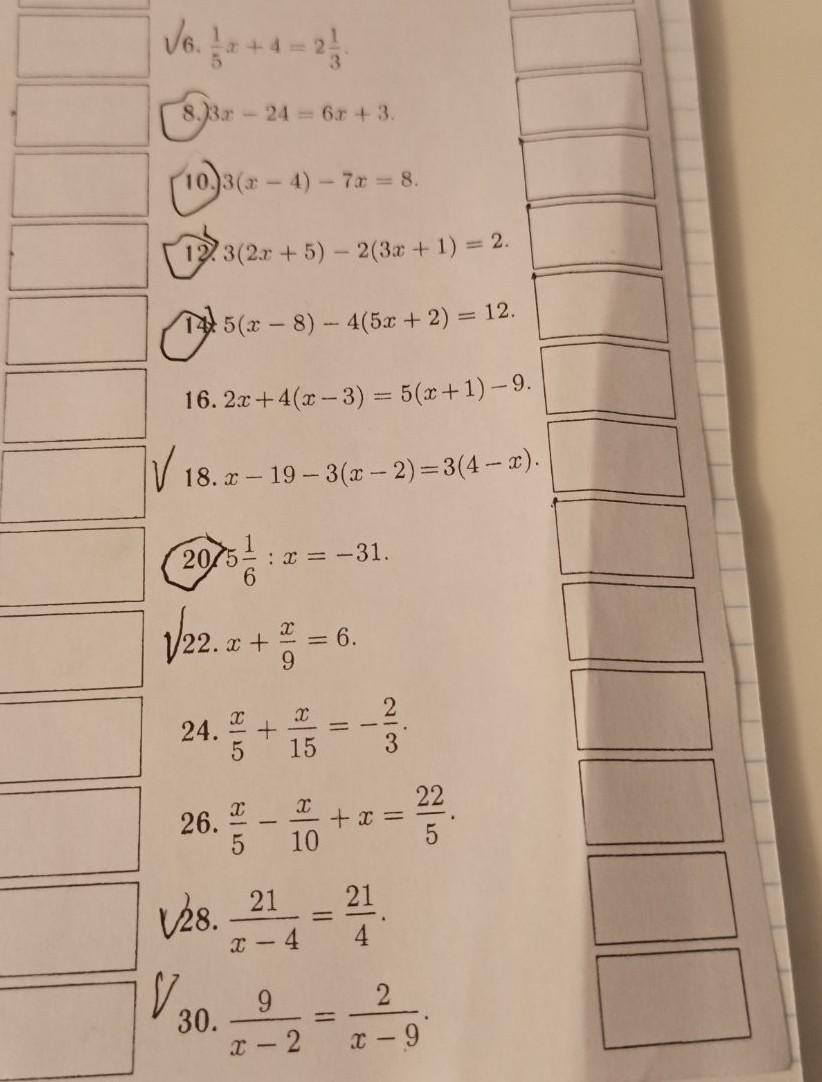 6. 1/5 x + 4 = 2 1/3.
8. 3x − 24 = 6x + 3.
10. 3(x − 4) − 7x = 8.
12. 3(2x + 5) − 2(3x + 1) = 2.
14. 5(x − 8) − 4(5x + 2) = 12.
16. 2x + 4(x − 3) = 5(x + 1) − 9.
18. x − 19 − 3(x − 2) = 3(4 − x).
20. 5 1/6 : x = −31.
22. x + x/9 = 6.
24. x/5 + x/15 = −2/3.
26. x/5 − x/10 + x = 22/5.
28. 21/(x − 4) = 21/4.
30. 9/(x − 2) = 2/(x − 9).